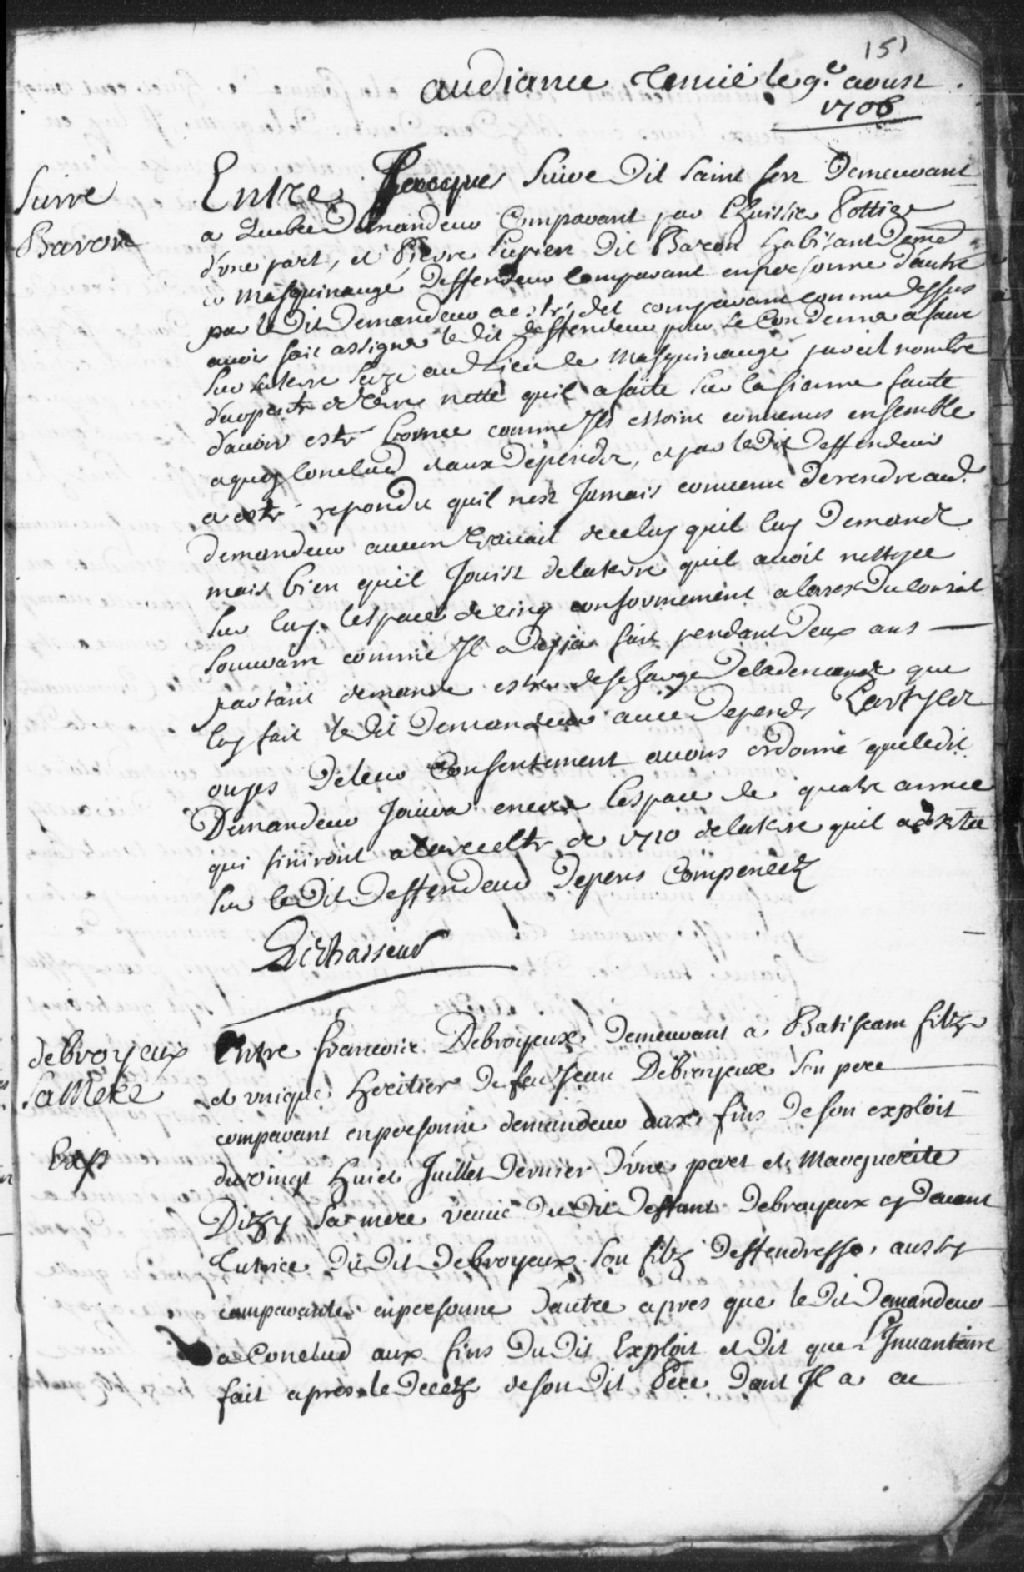 151
audiance Tenüe le 9e. aoust
1706
Suire
Baron
Entre Jacques Suire Dit Saint  Demeurant
a Quebec Demandeur Comparant par L'huissier Pottier
d'vne part, et Pierre Lepien Dit Baron habitant Deme
a Masquinangé Deffendeur Comparant en personne d'autre
par le Dit Demandeur a esté dit comparant comme dessus
auoir fait assigner le dit deffendeur pour se Condemner a faire
sur sa terre size aud Lieu de Masquinangé pareil nombre
d'arpents de terre nette quil a faite sur la sienne faute
d'auoir esté bornée comme Ils estoint conuenus ensemble
a quoy Conclud et aux Dependz, et par le Dit deffendeur
a esté repondu quil n'est Jamais conuenu de rendre aud.
demandeur aucun trauail de celuy quil luy Demande
mais bien qu'il Jouist de la terre quil auoit nettoyee
sur luy lespace de cinq conformement a  du Contrat
 comme Il a deja fait pendant Deux ans
partant demande estre deschargé de la demande que
luy fait le Dit Demandeur auec Depends Partyes
ouyes De leur Consentement auons ordonné que ledit
Demandeur Jouira encore lespace de quatre année
qui finiront a la recolte de 1710 de la terre quil a deserté
sur le Dit Deffendeur Depens Compencéz
Dechasseur
debroyeux
Sa Mere
Exp
Entre francois Debroyeux Demeurant a Batiscam filz
et vnique heritier de feu Jean Debroyeux son pere
comparant en personne demandeur aux fins de son exploit
du vingt huict Juillet Dernier d'vne part et Marguerite
Dizy sa mere veuue du Dit Deffunt Debroyeux cy deuant
Tutrice du Dit Debroyeux son filz deffendresse aussy
comparante en personne d'autre apres que le Dit Demandeur
a Conclud aux fins du Dit Exploit et Dit que l'Jnuantaire
fait apres le Decedz de son Dit Pere Dont Il a eu